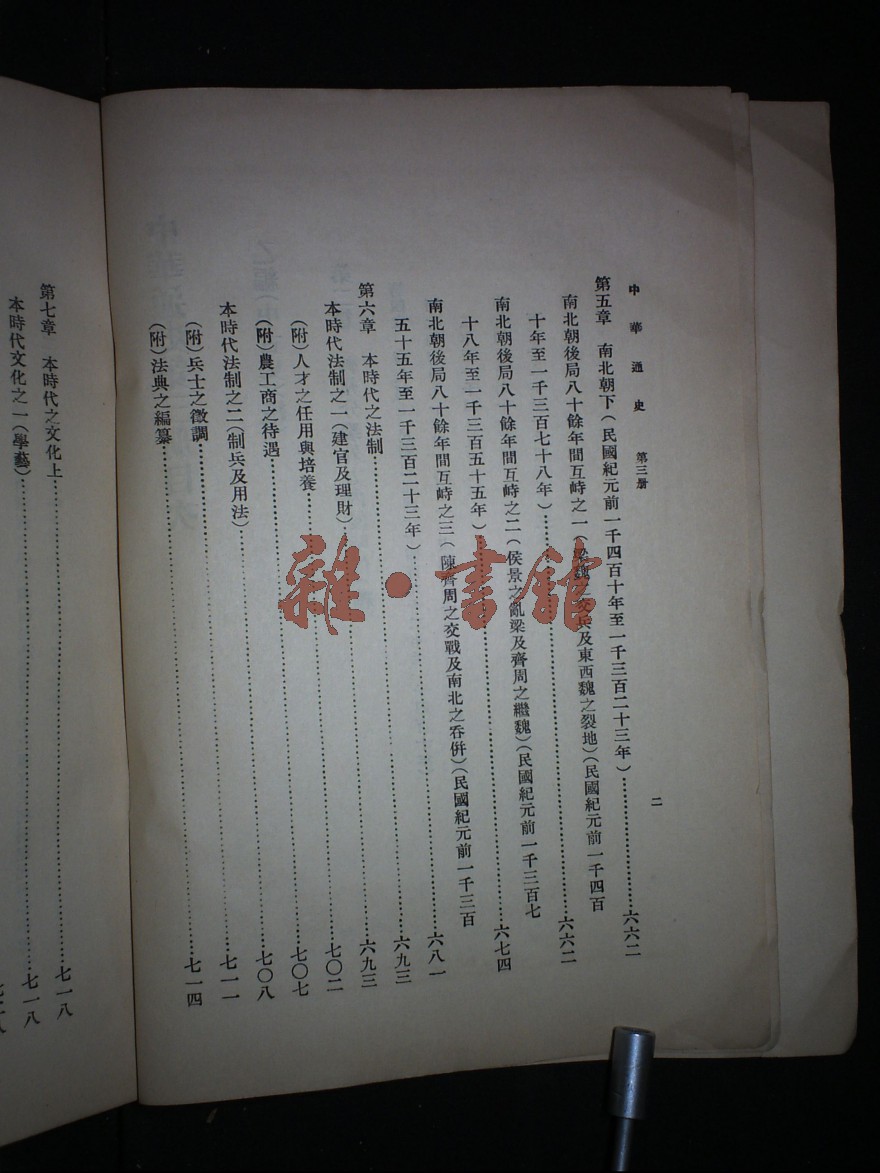 中華通史 第三册 二
第五章 南北朝下(民國紀元前一千四百十年至一千三百二十三年)……六六二
南北朝後局八十餘年間互峙之一(梁魏之交兵及東西魏之裂地)(民國紀元前一千四百
十年至一千三百七十八年)……六六二
南北朝後局八十餘年間互峙之二(侯景之亂梁及齊周之繼魏)(民國紀元前一千三百七
十八年至一千三百五十五年)……六七四
南北朝後局八十餘年間互峙之三(陳齊周之交戰及南北之吞併)(民國紀元前一千三百
五十五年至一千三百二十三年)……六八一
第六章 本時代之法制……六九三
本時代法制之一(建官及理財)……六九三
(附)人才之任用與培養……七〇二
(附)農工商之待遇……七〇七
本時代法制之二(制兵及用法)……七〇八
(附)兵士之徵調……七一一
(附)法典之編纂……七一四
第七章 本時代之文化上……七一八
本時代文化之一(學藝)……七一八
雜·書館